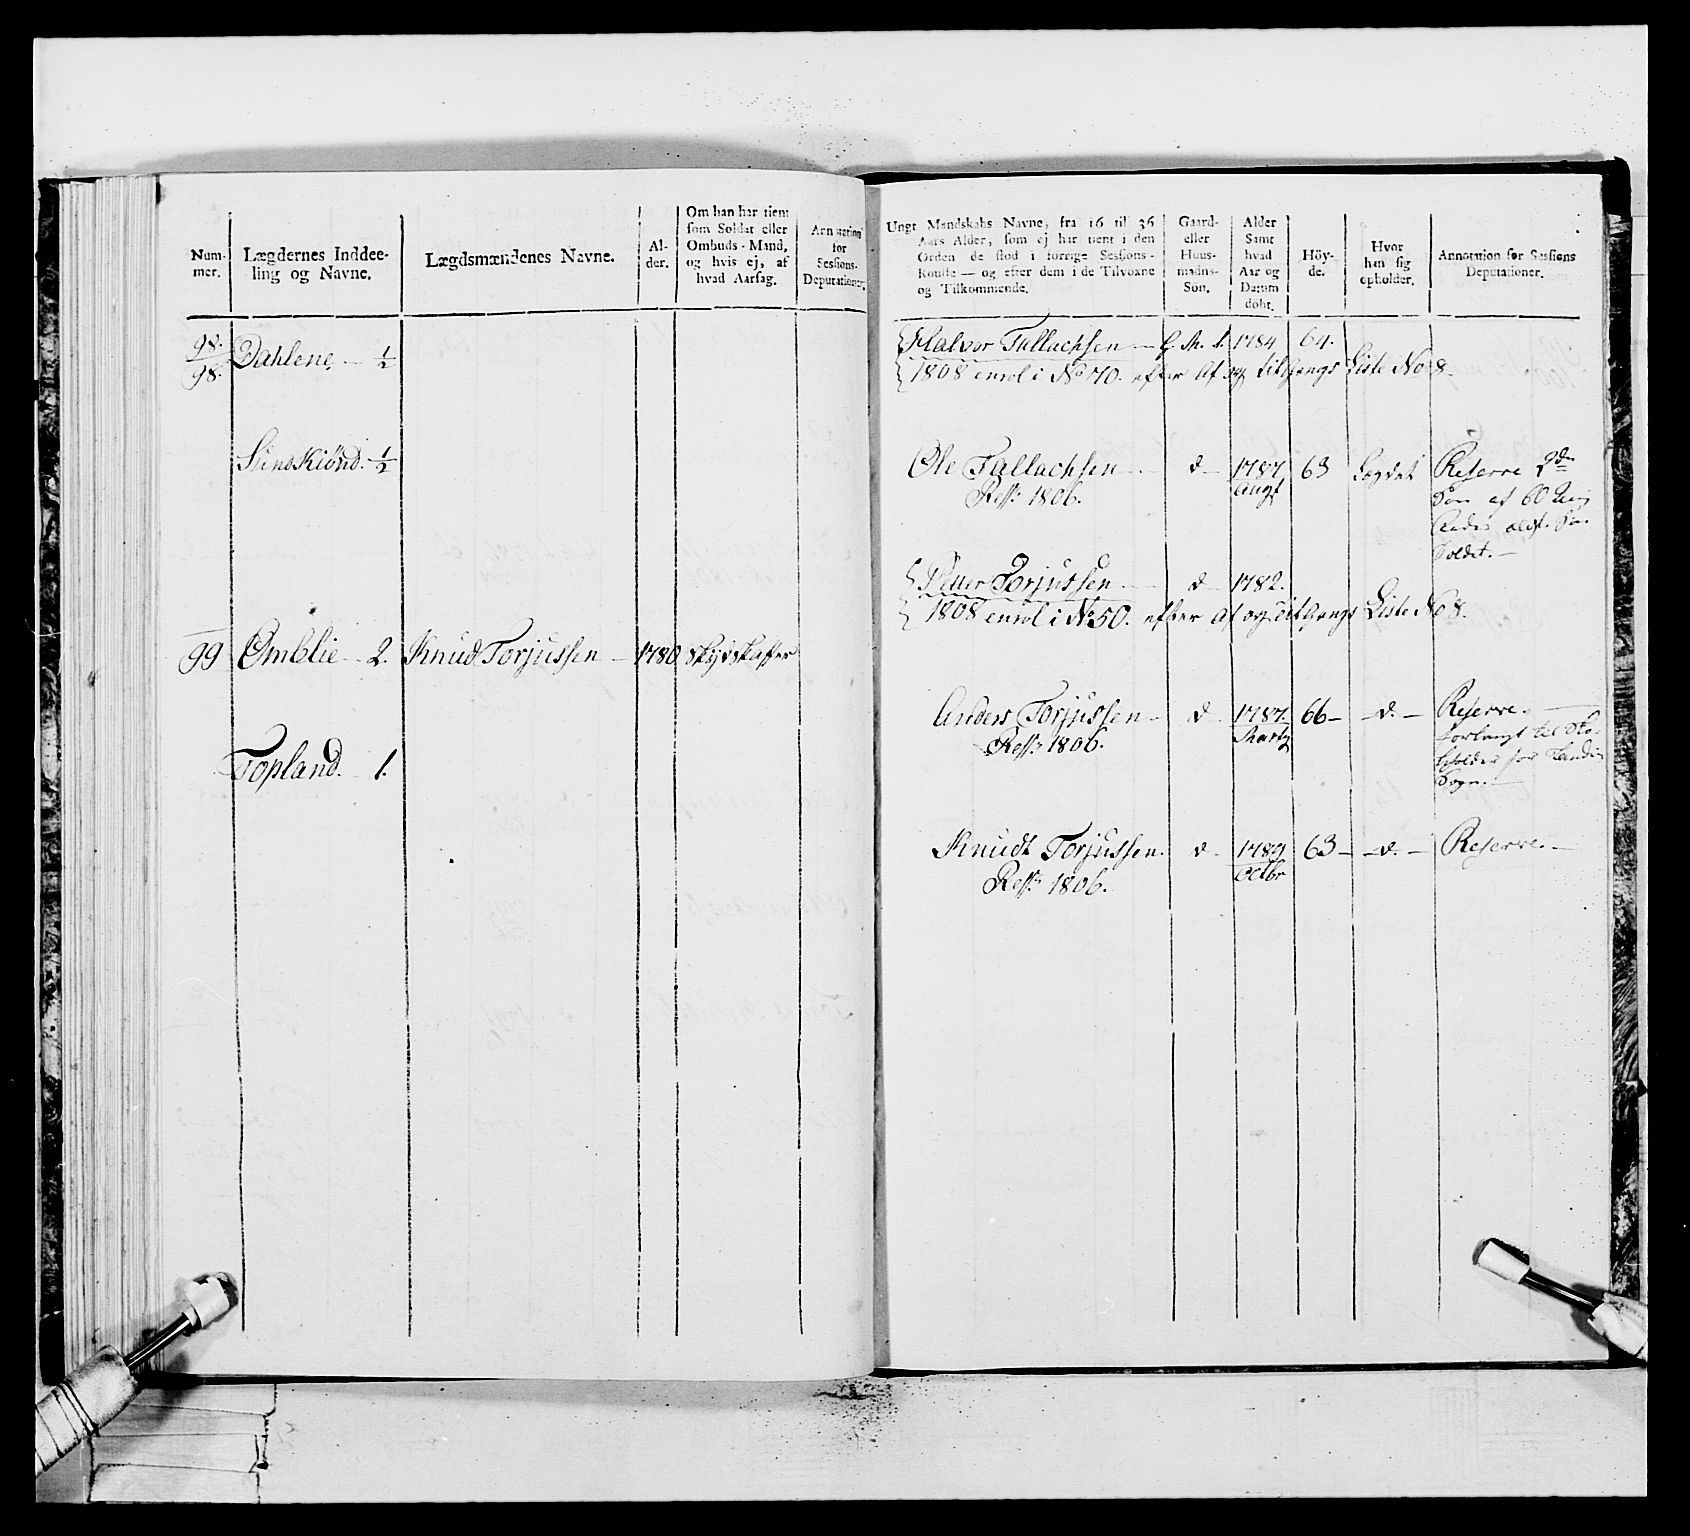 Num-
mer.
Lægdernes Inddee-
ling og Navne.
Lægdsmændenes Navne.
Al-
der.
Om han har tient
som Soldat eller
Ombuds-Mand,
og hvis ej, af
hvad Aarsag.
Annotation
for
Sessions-
Deputationer.
98.
98.
Dahlene — 1/2
1/2
99 Omblie — 2. Knud Torjussen — 1780 Skydskaffer
Topland. 1.
Ungt Mandskabs Navne, fra 16 til 36
Aars Alder, som ej har tient i den
Orden de stod i forrige Sessions-
Roulle — og efter dem i de Tilvoxne
og Tilkommende.
Gaard-
eller
Huus-
mands-
Søn.
Alder
Samt
hvad
Aar og
Datum
döbt.
Höy-
de.
Hvor
han sig
opholder.
Annotation for Sessions
Deputationer.
Halvor Tallachsen — 1784 64.
1808 enrol i No 70. efter Af og tilgangs Liste No 8.
Ole Tallachsen — d— 1787 63 Lægdet Reserve
Ress: 1806. Augt
Søn af 60
Soldat. —
Peter Torjussen — d— 1782.
1808 enrol i No 50. efter Af og tilgangs Liste No 8.
Anders Torjussen — d— 1787. 66 — d. — Reserve. —
Ress: 1806. Marty
forlangt til
for
Sogn. —
Knudt Torjussen. d— 1789 63 — d. — Reserve. —
Ress: 1806. Octbr